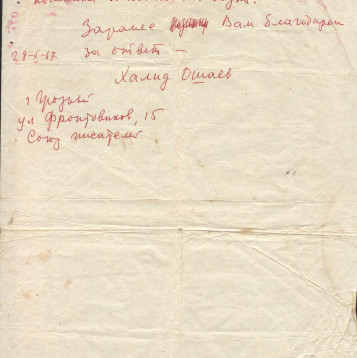 Заранее Вам благодарен
28-X-67 за ответ —
Халид Ошаев
г Грозный
ул Фронтовиков, 15
Союз писателей